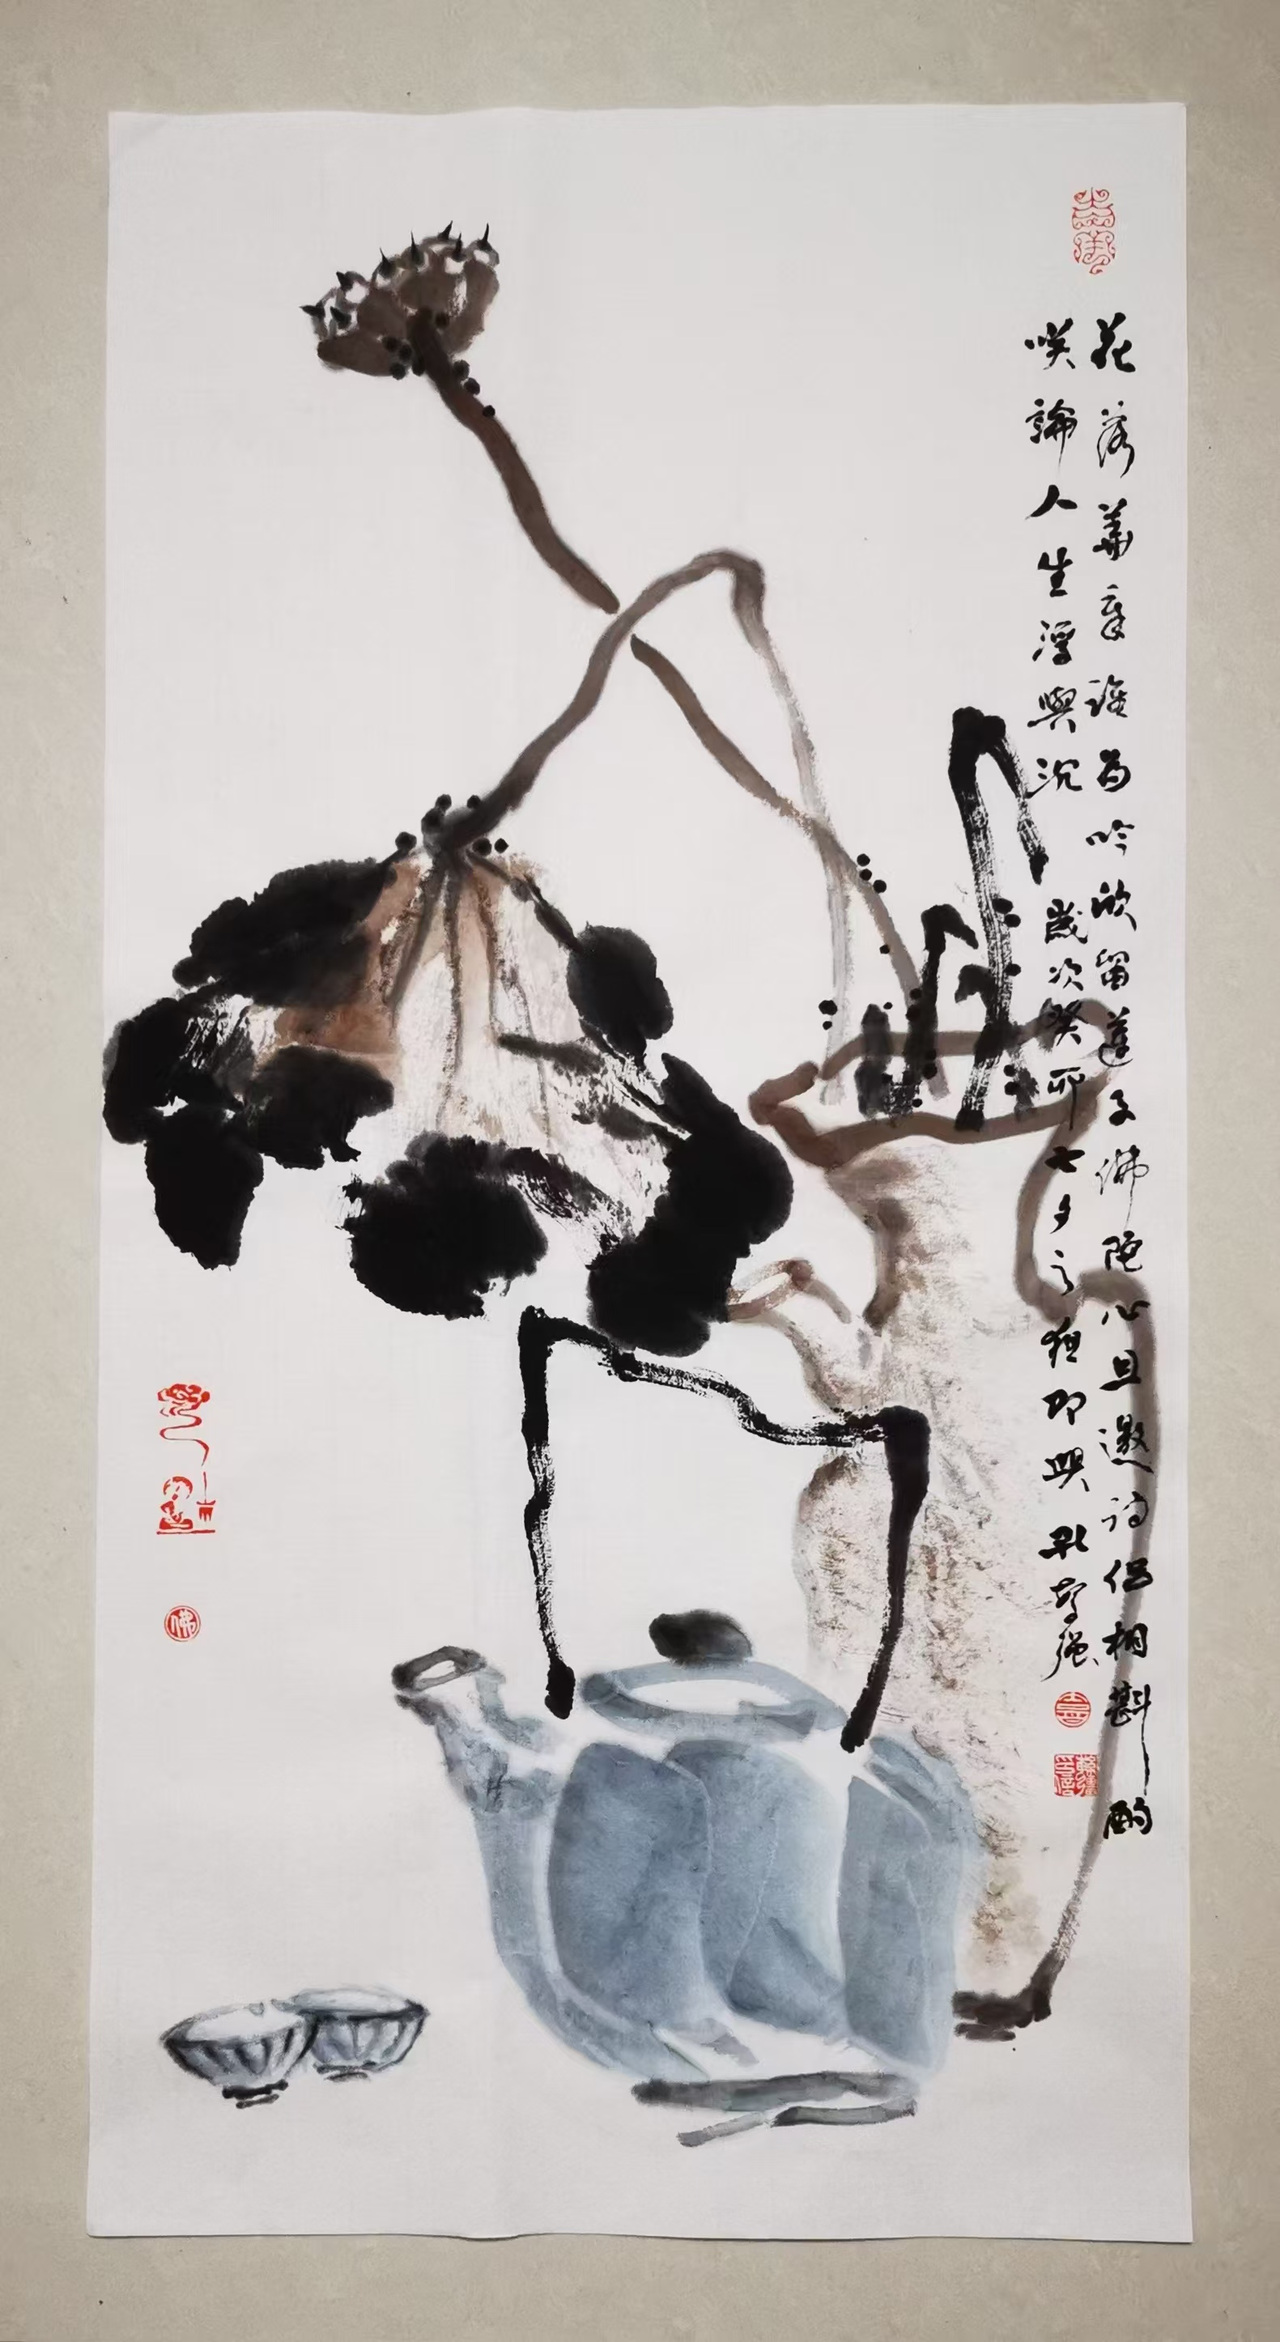 花落華章誰為吟欣留蓮子佛陀心且邀詩侶相斟酌
咲論人生浮與沉 歲次癸卯七夕之狂即興 孔
佛